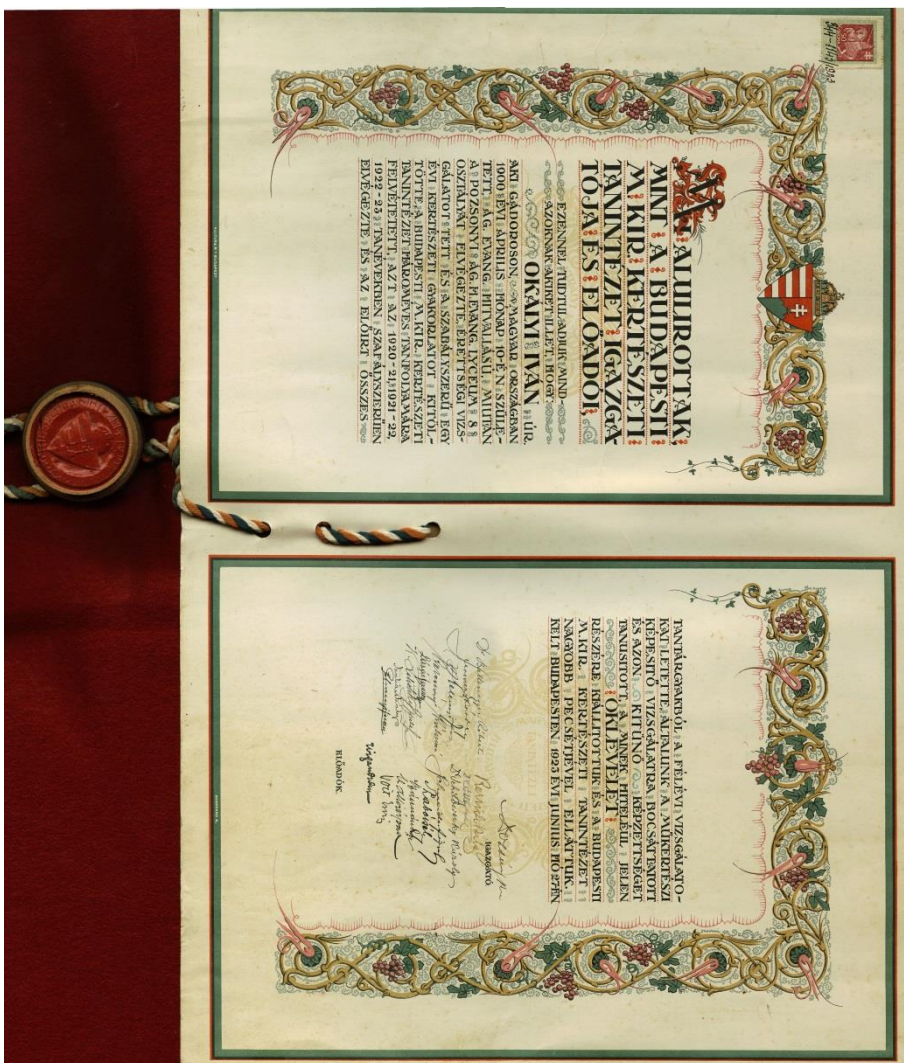 344-1143/1923
ALULIROTTAK,
MINT A BUDAPESTI
M. KIR. KERTÉSZETI
TANINTÉZET IGAZGA
TÓJA ÉS ELŐADÓI,
EZENNEL TUDTUL ADJUK MIND-
AZOKNAK AKIKET ILLET, HOGY
OKÁLYI IVÁN ÚR,
AKI GÁDOROSON, MAGYAR ORSZÁGBAN
1900 ÉVI ÁPRILIS HÓNAP 10-ÉN SZÜLE-
TETT, ÁG. EVANG. HITVALLÁSÚ, MIUTÁN
A POZSONYI ÁG. H. EVANG. LYCEUM 8
OSZTÁLYÁT ELVÉGEZTE, ÉRETTSÉGI VIZS-
GÁLATOT TETT ÉS A SZABÁLYSZERŰ EGY
ÉVI KERTÉSZETI GYAKORLATOT KITÖL-
TÖTTE, A BUDAPESTI M. KIR. KERTÉSZETI
TANINTÉZET HÁROMÉVES TANFOLYAMÁRA
FELVÉTETETT, AZT AZ 1920-21, 1921-22,
1922-23 TANÉVEKBEN SZABÁLYSZERŰEN
ELVÉGEZTE ÉS AZ ELŐIRT ÖSSZES
TANTÁRGYAKBÓL A FÉLÉVI VIZSGÁLATO-
KAT LETETTE, ÁLTALUNK A MŰKERTÉSZI
KÉPESITŐ VIZSGÁLATRA BOCSÁTTATOTT
ÉS AZON KITÜNŐ KÉPZETTSÉGET
TANUSITOTT, A MINEK HITELÉÜL JELEN
OKLEVELET
RÉSZÉRE KIÁLLITOTTUK ÉS A BUDAPESTI
M. KIR. KERTÉSZETI TANINTÉZET
NAGYOBB PECSÉTJÉVEL ELLÁTTUK.
KELT BUDAPESTEN 1923 ÉVI JUNIUS HÓ 27ÉN
IGAZGATÓ
ELŐADÓK.